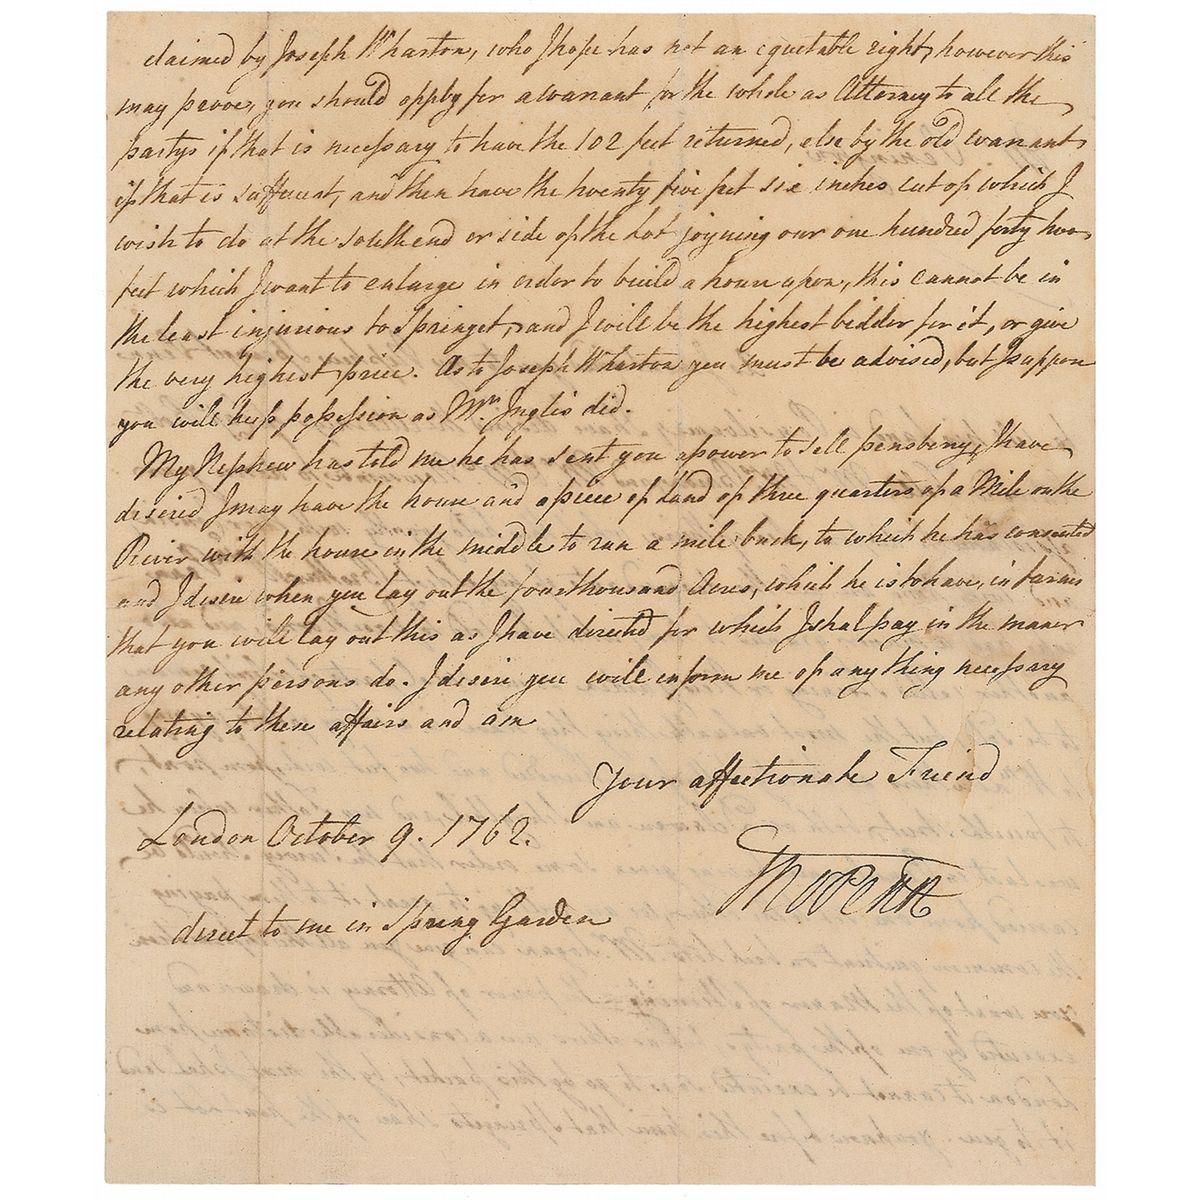 claimed by Joseph Wharton, who I hope has not an equitable right, however this
may prove, you should apply for a warrant for the whole as Attorney to all the
partys if that is necessary to have the 102 feet returned, else by the old warrant
if that is sufficient, and then have the twenty five feet six inches cut of which I
wish to do at the south end or side of the Lot joyning our one hundred forty two
feet which I want to enlarge in order to build a house upon, this cannot be in
the least injurious to Springet, and I will be the highest bidder for it, or give
the very highest price. As to Joseph Wharton you must be advised, but I suppose
you will keep possession as Mr. Inglis did.
My Nephew has told me he has sent you a power to sell pensberry, I have
desired I may have the house and a piece of Land of three quarters of a Mile on the
River with the house in the middle to run a mile back, to which he has consented
and I desire when you lay out the four thousand Acres, which he is to have, in farms
that you will lay out this as I have directed for which I shal pay in the maner
any other persons do. I desire you will inform me of any thing necessary
relating to these affairs and am
Your affectionate Friend
London October 9. 1762.
Tho Penn
direct to me in Spring Garden